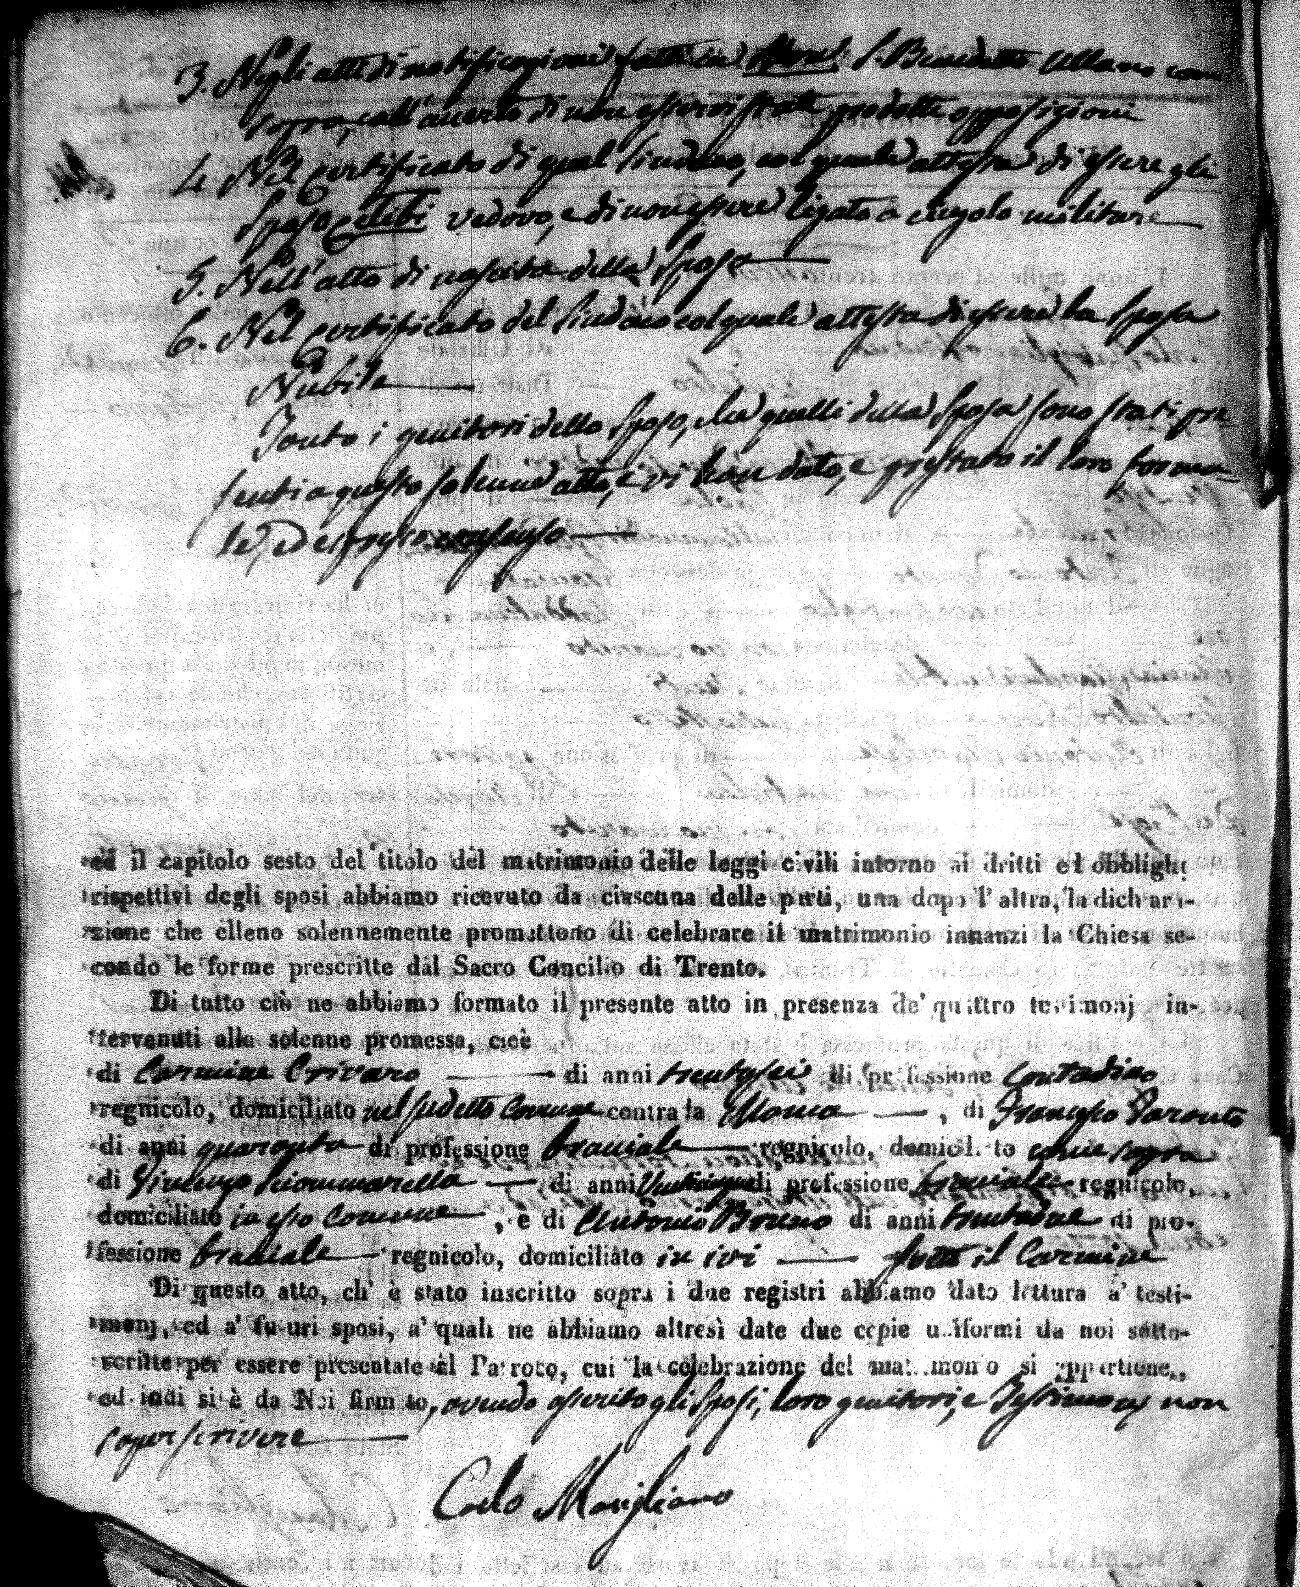 3. Negli atti di notificazioni fatte in S. Benedetto Ullano come
sopra, coll'avverto di non essersi state prodotte opposizioni
4. Nel Certificato di quel Sindaco, col quale attesta di essere gli
Sposo celibi vedovo, e di non essere ligato a cingolo militare
5. Nell'atto di nascita della Sposa
6. Nel certificato del Sindaco col quale attesta di essere la Sposa
Nubile
Tanto i genitori dello Sposo, che quelli della Sposa sono stati pre
senti a questo solenne atto, e vi han dato, e prestato il loro forma
le, ed espresso consenso
ed il capitolo sesto del titolo del matrimonio delle leggi civili intorno ai dritti ed obblighi
rispettivi degli sposi abbiamo ricevuto da ciascuna delle parti, una dopo l'altra, la dichiara-
zione che elleno solennemente promettono di celebrare il matrimonio innanzi la Chiesa se-
condo le forme prescritte dal Sacro Concilio di Trento.
Di tutto ciò ne abbiamo formato il presente atto in presenza de' quattro testimonj in-
tervenuti alla solenne promessa, cioè
di Carmine Crivaro di anni trentasei di professione contadino
regnicolo, domiciliato nel sudetto Comune contrada, di Francesco Paronto
di anni quaranta di professione bracciale regnicolo, domiciliato come sopra
di Vincenzo Sciammarella, di anni di professione bracciale regnicolo,
domiciliato in esso Comune, e di Antonio Bruno di anni trentadue di pro-
fessione bracciale regnicolo, domiciliato in ivi il Carmine
Di questo atto, ch' è stato inscritto sopra i due registri abbiamo dato lettura a' testi-
monj, ed a' futuri sposi, a' quali ne abbiamo altresì date due copie uniformi da noi sotto-
scritte per essere presentate al Parroco, cui la celebrazione del matrimonio si appartiene,
ed indi si è da Noi firmato, avendo asserito gli Sposi, loro genitori, e Testimonj non
saper scrivere
Carlo Marigliano